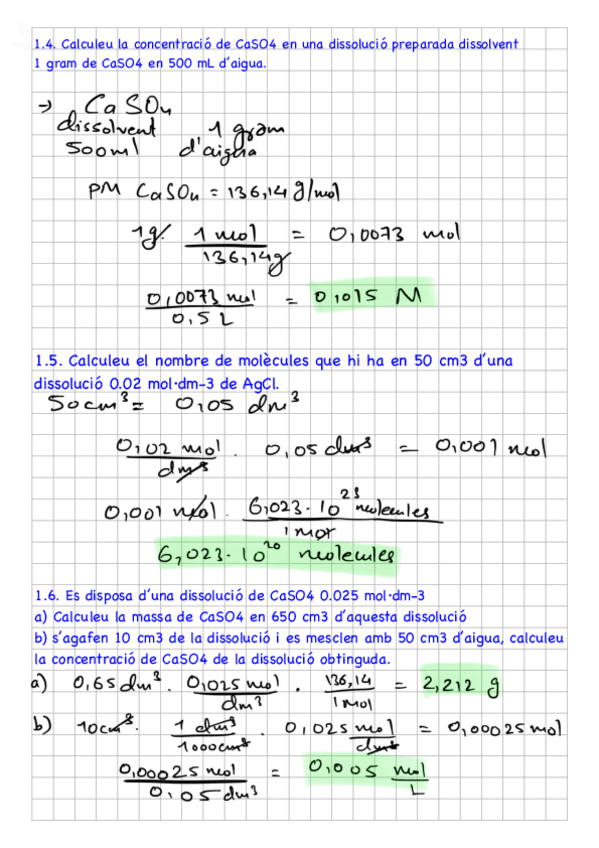 1.4. Calculeu la concentració de CaSO4 en una dissolució preparada dissolvent
1 gram de CaSO4 en 500 mL d'aigua.
→ CaSO4
dissolvent 1 gram
500ml d'aigua
PM CaSO4 = 136,14 g/mol
1g. 1 mol / 136,14g = 0,0073 mol
0,0073 mol / 0,5 L = 0,015 M
1.5. Calculeu el nombre de molècules que hi ha en 50 cm3 d'una
dissolució 0.02 mol·dm-3 de AgCl.
50cm³ = 0,05 dm³
0,02 mol / dm³ . 0,05 dm³ = 0,001 mol
0,001 mol . 6,023·10²³ molecules / 1 mol
6,023·10²⁰ molecules
1.6. Es disposa d'una dissolució de CaSO4 0.025 mol·dm-3
a) Calculeu la massa de CaSO4 en 650 cm3 d'aquesta dissolució
b) s'agafen 10 cm3 de la dissolució i es mesclen amb 50 cm3 d'aigua, calculeu
la concentració de CaSO4 de la dissolució obtinguda.
a) 0,65 dm³ . 0,025 mol / dm³ . 136,14 / 1 mol = 2,212 g
b) 10cm³ . 1 dm³ / 1000cm³ . 0,025 mol / dm³ = 0,00025 mol
0,00025 mol / 0,05 dm³ = 0,005 mol / L